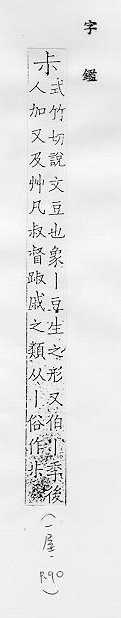 字鑑
尗
式竹切說文豆也象丨豆生之形又伯尗季後
人加又及艸凡叔督踧戚之類从丨俗作
(一屋,
R90)